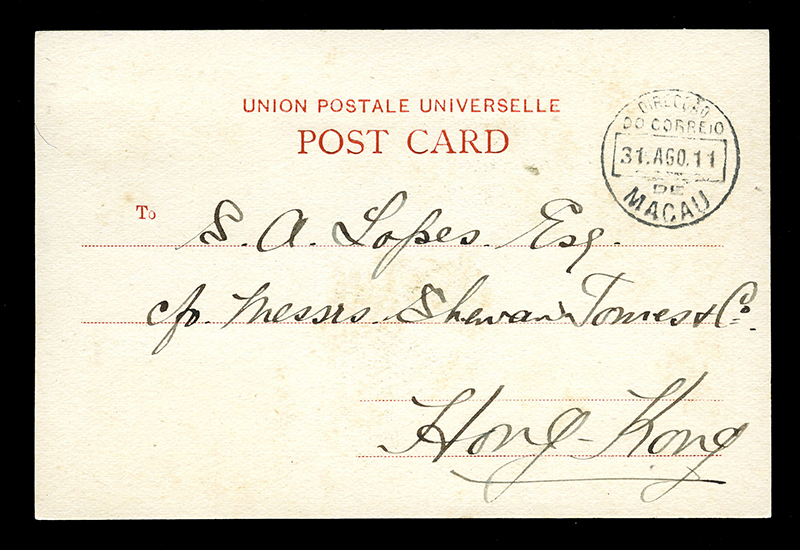 UNION POSTALE UNIVERSELLE
POST CARD
DIRECÇÃO
DO CORREIO
31.AGO.11
DE
MACAU
To
S. A. Lopes Esq.
c/o. Messrs. Shewan Tomes & Co.
Hong-Kong